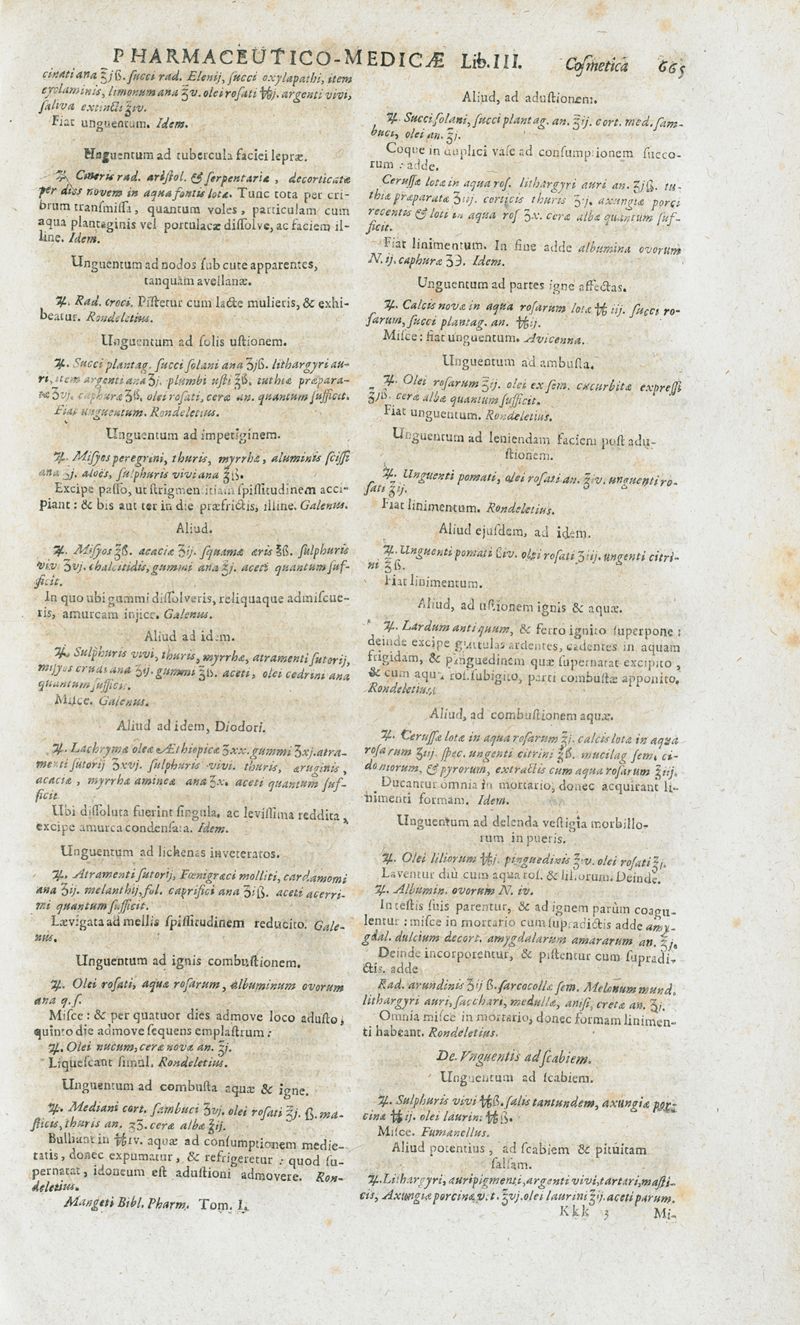 PHARMACEUTICO-MEDICÆ Lib. III. Cosmetica 665
cinati ana ℥jß. ſucci rad. Elenij, ſucci oxylapathi, item
cyclaminis, limonum ana ℥v. olei roſati ℔j. argenti vivi,
ſaliva extincti ℥iv.
Fiat unguentum. Idem.
Unguentum ad tubercula faciei lepræ.
♃. Cineris rad. ariſtol. & ſerpentariæ, decorticatæ
per dies novem in aqua fontis lotæ. Tunc tota per cri-
brum tranſmiſſa, quantum voles, particulam cum
aqua plantaginis vel portulacæ diſſolve, ac faciem il-
line. Idem.
Unguentum ad nodos ſub cute apparentes,
tanquam avellanæ.
♃. Rad. croci. Piſtetur cum lacte mulieris, & exhi-
beatur. Rondeletius.
Unguentum ad ſolis uſtionem.
♃. Succi plantag. ſucci ſolani ana ℥jß. lithargyri au-
ri, item argenti ana ℥j. plumbi uſti ℥ß. tuthiæ præpara-
tæ ʒvj. caphuræ ʒß. olei roſati, ceræ an. quantum ſufficit.
Fiat unguentum. Rondeletius.
Unguentum ad impetiginem.
♃. Miſyos peregrini, thuris, myrrhæ, aluminis ſciſſi
ana ʒj. aloës, ſulphuris vivi ana ℥iß.
Excipe paſſo, ut ſtrigmentitiam ſpiſſitudinem acci-
piant: & bis aut ter in die præfrictis, illine. Galenus.
Aliud.
♃. Miſyos ℥ß. acaciæ ʒij. ſquamæ æris ℥ß. ſulphuris
viv. ʒvj. chalcitidis, gummi ana ℥j. aceti quantum ſuf-
ficit.
In quo ubi gummi diſſolveris, reliquaque admiſcue-
ris, amurcam injice. Galenus.
Aliud ad idem.
♃. Sulphuris vivi, thuris, myrrhæ, atramenti ſutorij,
miſyos crudi ana ʒij. gummi ℥ß. aceti, olei cedrini ana
quantum ſufficit.
Miſce. Galenus.
Aliud ad idem, Diodori.
♃. Lachrymæ oleæ Æthiopicæ ʒxx. gummi ʒxj. atra-
menti ſutorij ʒxvj. ſulphuris vivi. thuris, æruginis,
acaciæ, myrrhæ amineæ ana ʒx. aceti quantum ſuf-
ficit.
Ubi diſſoluta fuerint ſingula, ac leviſſima reddita,
excipe amurca condenſata. Idem.
Unguentum ad lichenas inveteratos.
♃. Atramenti ſutorij, Fœnigræci molliti, cardamomi
ana ʒij. melanthij, fol. caprifici ana ʒiß. aceti acerri-
mi quantum ſufficit.
Lævigata ad mellis ſpiſſitudinem reducito. Gale-
nus.
Unguentum ad ignis combuſtionem.
♃. Olei roſati, aquæ roſarum, albuminum ovorum
ana q. ſ.
Miſce: & per quatuor dies admove loco aduſto,
quinto die admove ſequens emplaſtrum:
♃. Olei nucum, ceræ novæ an. ℥j.
Liqueſcant ſimul. Rondeletius.
Unguentum ad combuſta aquæ & igne.
♃. Mediani cort. ſambuci ʒvj. olei roſati ℥j. ß. ma-
ſticis, thuris an. ʒß. ceræ albæ ℥ij.
Bulliant in ℔iv. aquæ ad conſumptionem medie-
tatis, donec expumatur, & refrigeretur: quod ſu-
pernatat, idoneum eſt aduſtioni admovere. Ron-
deletius.
Mangeti Bibl. Pharm. Tom. I.
Aliud, ad aduſtionem.
♃. Succi ſolani, ſucci plantag. an. ℥ij. cort. med. ſam-
buci, olei an. ℥j.
Coque in duplici vaſe ad conſumptionem ſucco-
rum: adde.
Ceruſſæ lotæ in aqua roſ. lithargyri auri an. ℥jß. tu-
thiæ præparatæ ʒiij. corticis thuris ʒij. axungiæ porci
recentis & loti in aqua roſ ʒx. ceræ albæ quantum ſuf-
ficit.
Fiat linimentum. In fine adde albumina ovorum
N. ij. caphuræ ʒʒ. Idem.
Unguentum ad partes igne affectas.
♃. Calcis novæ in aqua roſarum lotæ ℔iij. ſucci ro-
ſarum, ſucci plantag. an. ℔ij.
Miſce: fiat unguentum. Avicenna.
Unguentum ad ambuſta.
♃. Olei roſarum ℥ij. olei ex ſem. cucurbitæ expreſſi
℥jß. ceræ albæ quantum ſufficit.
Fiat unguentum. Rondeletius.
Unguentum ad leniendam faciem poſt adu-
ſtionem.
♃. Unguenti pomati, olei roſati an. ℥iv. unguenti ro-
ſati ℥ij.
Fiat linimentum. Rondeletius.
Aliud ejuſdem, ad idem.
♃. Unguenti pomati ℥iv. olei roſati ℥iij. ungenti citri-
ni ℥ß.
Fiat linimentum.
Aliud, ad uſtionem ignis & aquæ.
♃. Lardum antiquum, & ferro ignito ſuperpone:
deinde excipe guttulas ardentes, cadentes in aquam
frigidam, & pinguedinem quæ ſupernatat excipito,
& cum aqua roſ. ſubigito, parti combuſtæ apponito.
Rondeletius.
Aliud, ad combuſtionem aquæ.
♃. Ceruſſæ lotæ in aqua roſarum ℥j. calcis lotæ in aqua
roſarum ℥iij. ſpec. ungenti citrini ℥ß. mucilag ſem. ci-
doniorum, & pyrorum, extractis cum aqua roſarum ℥iij.
Ducantur omnia in mortario, donec acquirant li-
nimenti formam. Idem.
Unguentum ad delenda veſtigia morbillo-
rum in pueris.
♃. Olei liliorum ℔j. pinguedinis ℥v. olei roſati ℥j.
Laventur diù cum aqua roſ. & liliorum. Deinde.
♃. Albumin. ovorum N. iv.
In teſtis ſuis parentur, & ad ignem parùm coagu-
lentur: miſce in mortario cum ſupradictis adde amy-
gdal. dulcium decort. amygdalarum amararum an. ℥j.
Deinde incorporentur, & piſtentur cum ſupradi-
ctis. adde
Rad. arundinis ℥ij ß. ſarcocollæ ſem. Melonum mund.
lithargyri auri, ſacchari, medullæ, aniſi, cretæ an. ℥j.
Omnia miſce in mortario, donec formam linimen-
ti habeant. Rondeletius.
De Unguentis ad ſcabiem.
Unguentum ad ſcabiem.
♃. Sulphuris vivi ℔ß. ſalis tantundem, axungiæ por-
cinæ ℔ij. olei laurini ℔ß.
Miſce. Fumanellus.
Aliud potentius, ad ſcabiem & pituitam
ſalſam.
♃. Lithargyri, auripigmenti, argenti vivi, tartari, maſti-
cis, Axungiæ porcinæ, v. t. ʒvj. olei laurini ℥ij. aceti parum.
Kkk 3 Mi-